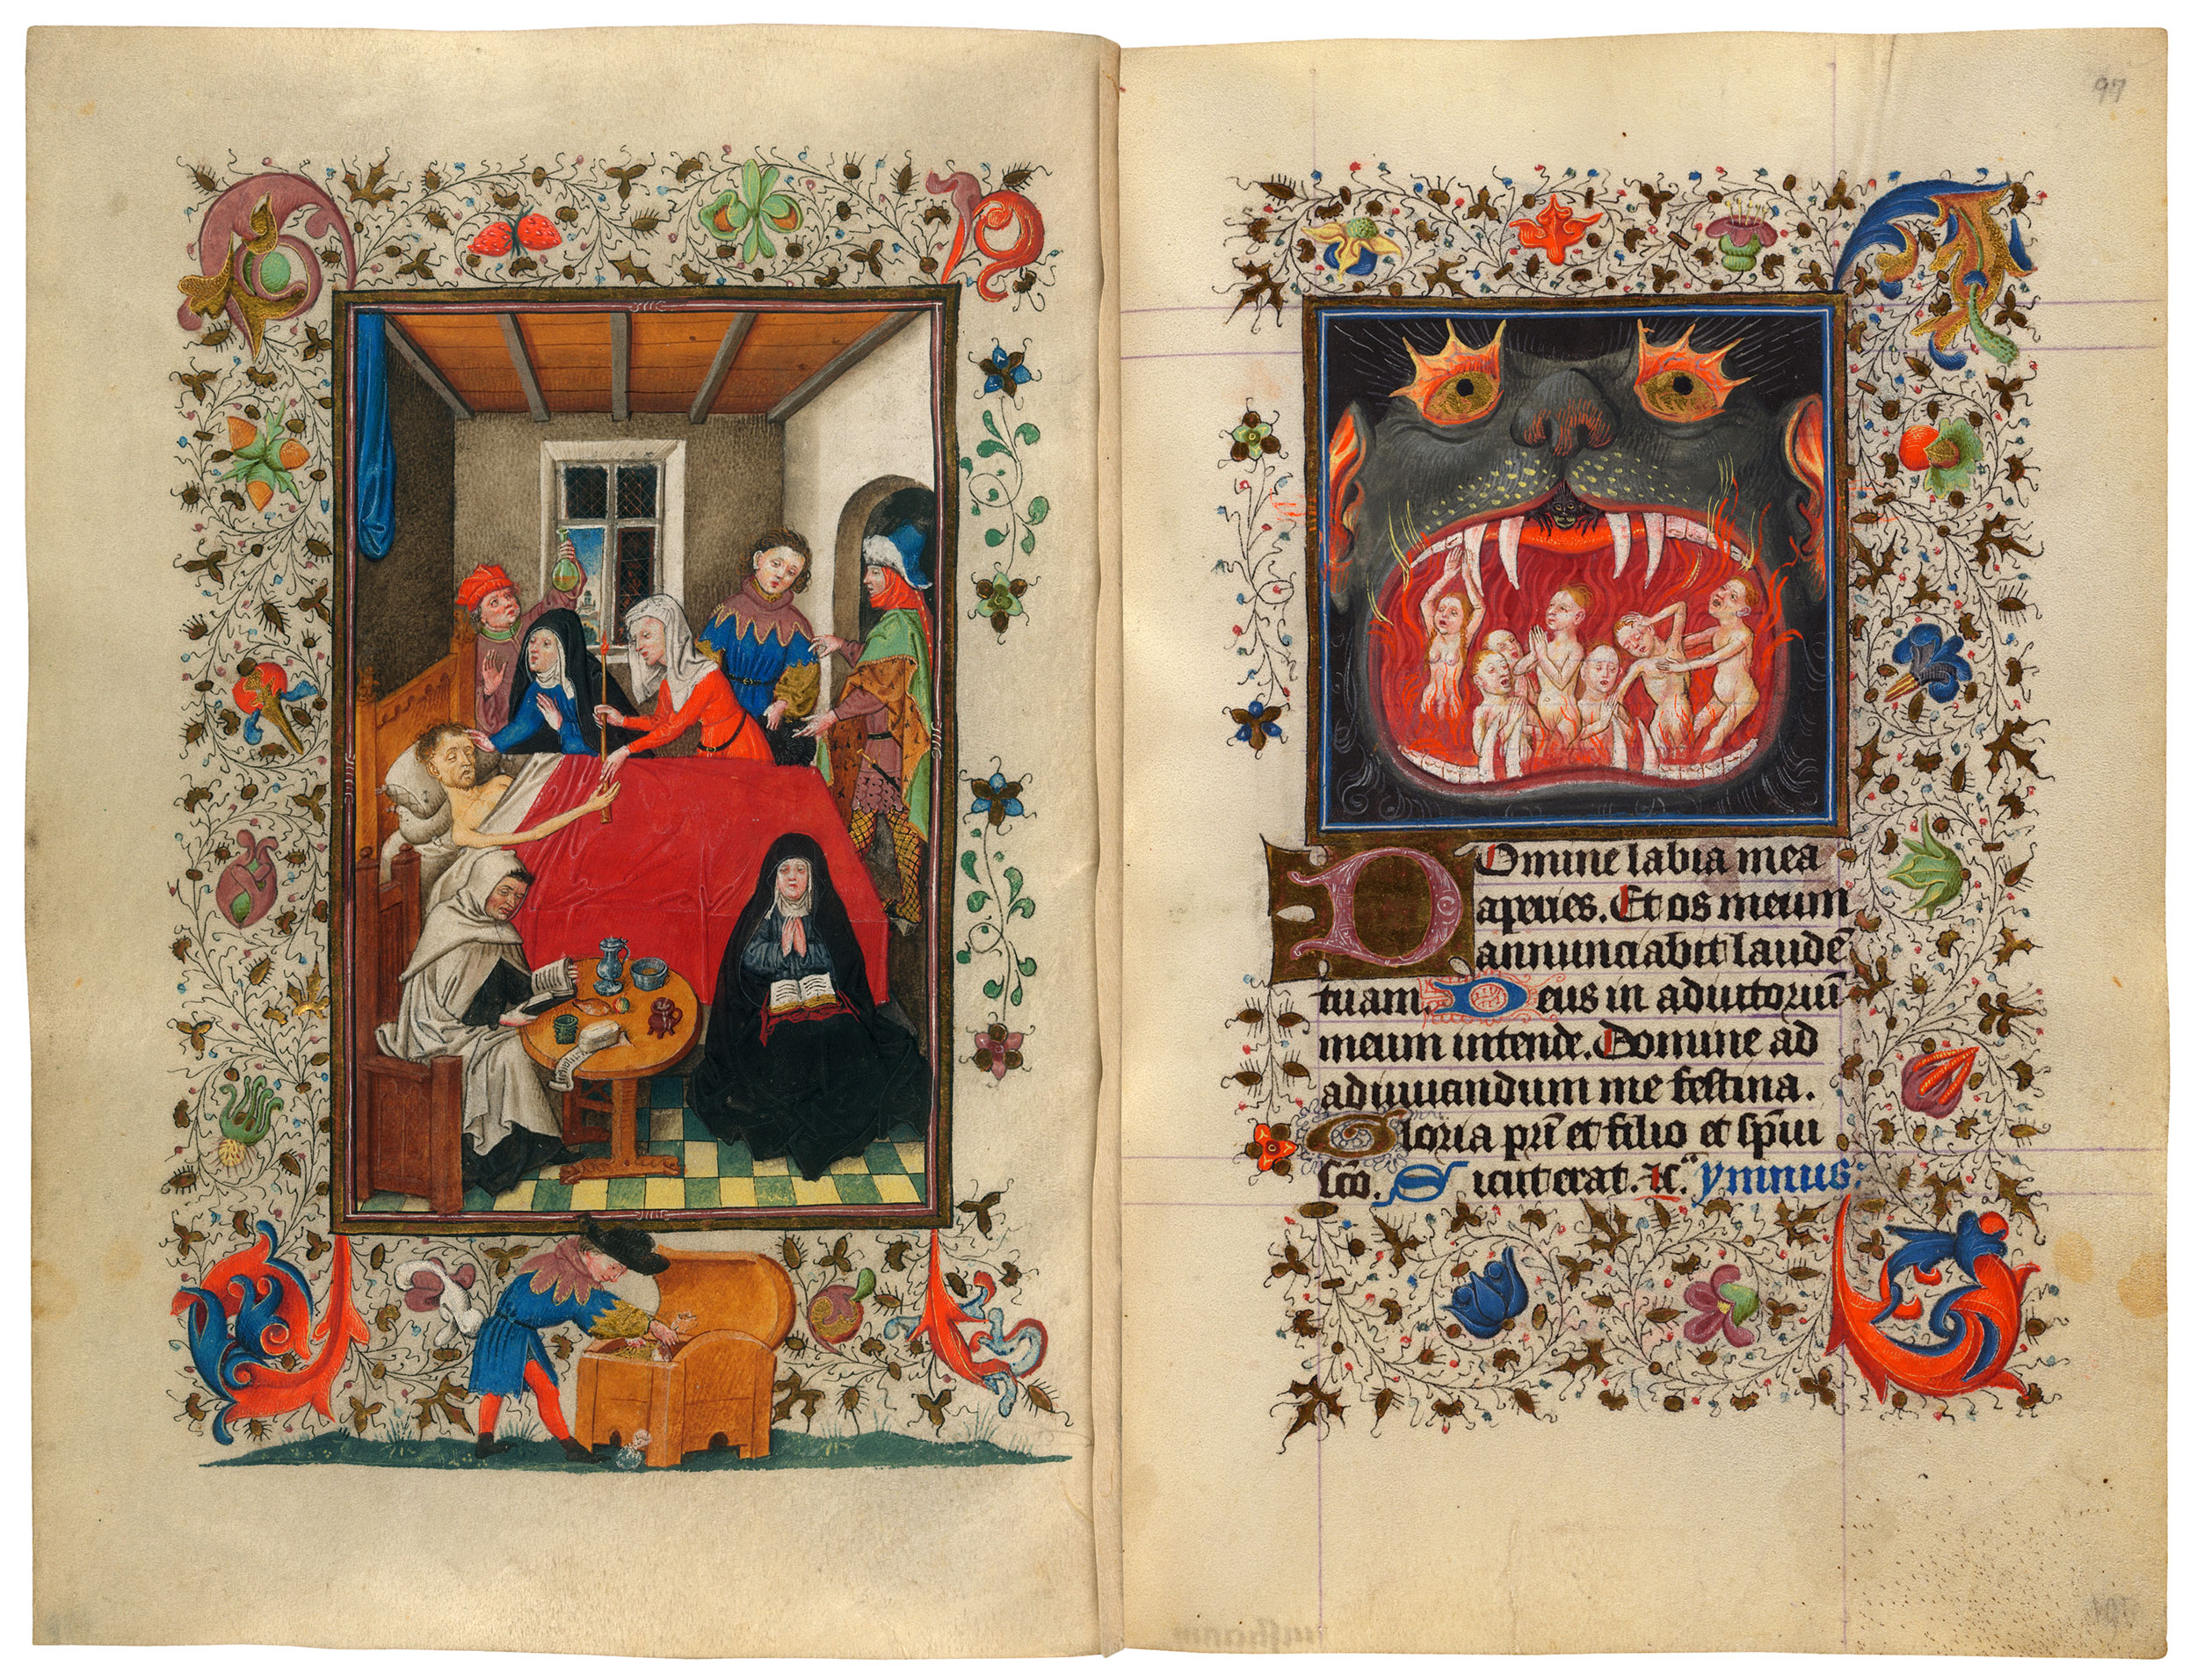 97
Domine labia mea
aperies. Et os meum
annunciabit laudē
tuam. Deus in adiutoriū
meum intende. Domine ad
adiuuandum me festina.
Gloria pr̄i et filio et sp̄ui
sc̄o. Sicut erat. ⁊c. ymnus: